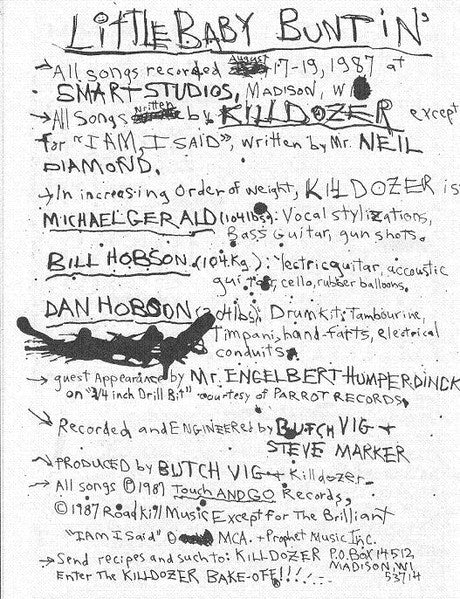 LITTLE BABY BUNTIN'
→ All songs recorded August 17-19, 1987 at
SMART STUDIOS, MADISON, WI
→ All Songs written by KILLDOZER except
for "I AM, I SAID", written by Mr. NEIL
DIAMOND.
→ In increasing Order of weight, KILLDOZER is
MICHAEL GERALD (104lbs): Vocal stylizations,
Bass Guitar, gun shots.
BILL HOBSON (104Kg): electric guitar, accoustic
guitar, cello, rubber balloons.
DAN HOBSON (304lbs): Drumkit, Tambourine,
Timpani, hand-farts, electrical
conduits.
→ guest Appearance by Mr. ENGELBERT HUMPERDINCK
on "3/4 inch Drill Bit" courtesy of PARROT RECORDS.
→ Recorded and ENGINEERED by BUTCH VIG +
STEVE MARKER
→ PRODUCED by BUTCH VIG + Killdozer.
→ All songs ℗ 1987 Touch AND GO Records,
© 1987 Roadkill Music Except for The Brilliant
"I Am I Said" MCA. + Prophet Music Inc.
→ Send recipes and such to: KILLDOZER P.O. Box 14512,
MADISON, WI
Enter The KILLDOZER BAKE-OFF!!!... 53714